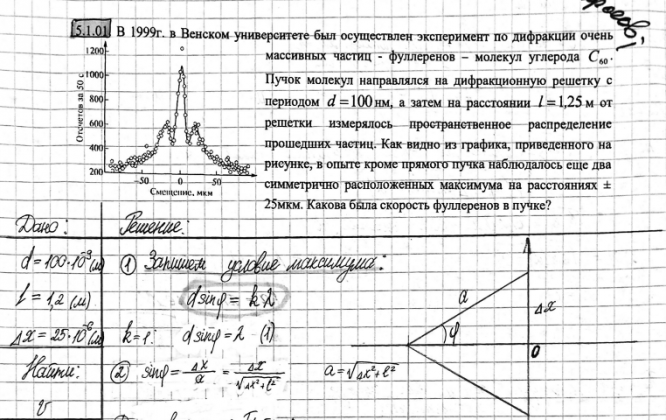 5.1.01 В 1999г. в Венском университете был осуществлен эксперимент по дифракции очень
массивных частиц - фуллеренов – молекул углерода C₆₀.
Пучок молекул направлялся на дифракционную решетку с
периодом d = 100 нм, а затем на расстоянии l = 1,25 м от
решетки измерялось пространственное распределение
прошедших частиц. Как видно из графика, приведенного на
рисунке, в опыте кроме прямого пучка наблюдалось еще два
симметрично расположенных максимума на расстояниях ±
25мкм. Какова была скорость фуллеренов в пучке?
Отсчетов за 50 с
1200
1000
800
600
400
200
-50 0 50
Смещение, мкм
Дано: Решение:
d = 100·10⁻⁹ (м) ① Запишем условие максимума:
l = 1,2 (м) d sinφ = kλ
Δx = 25·10⁻⁶ (м) k=1: d sinφ = λ (1)
Найти: ② sinφ = Δx/a = Δx/√Δx²+l² a = √Δx²+l²
v
a
Δx
φ
0